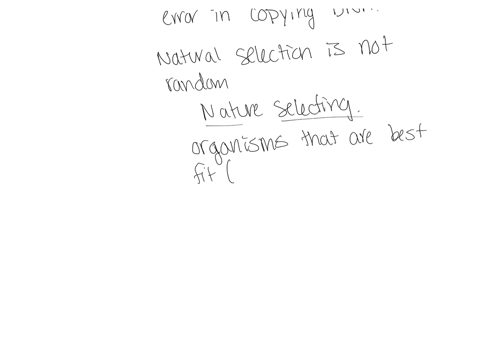 error in copying
Natural selection is not
random
Nature selecting.
organisms that are best
fit (